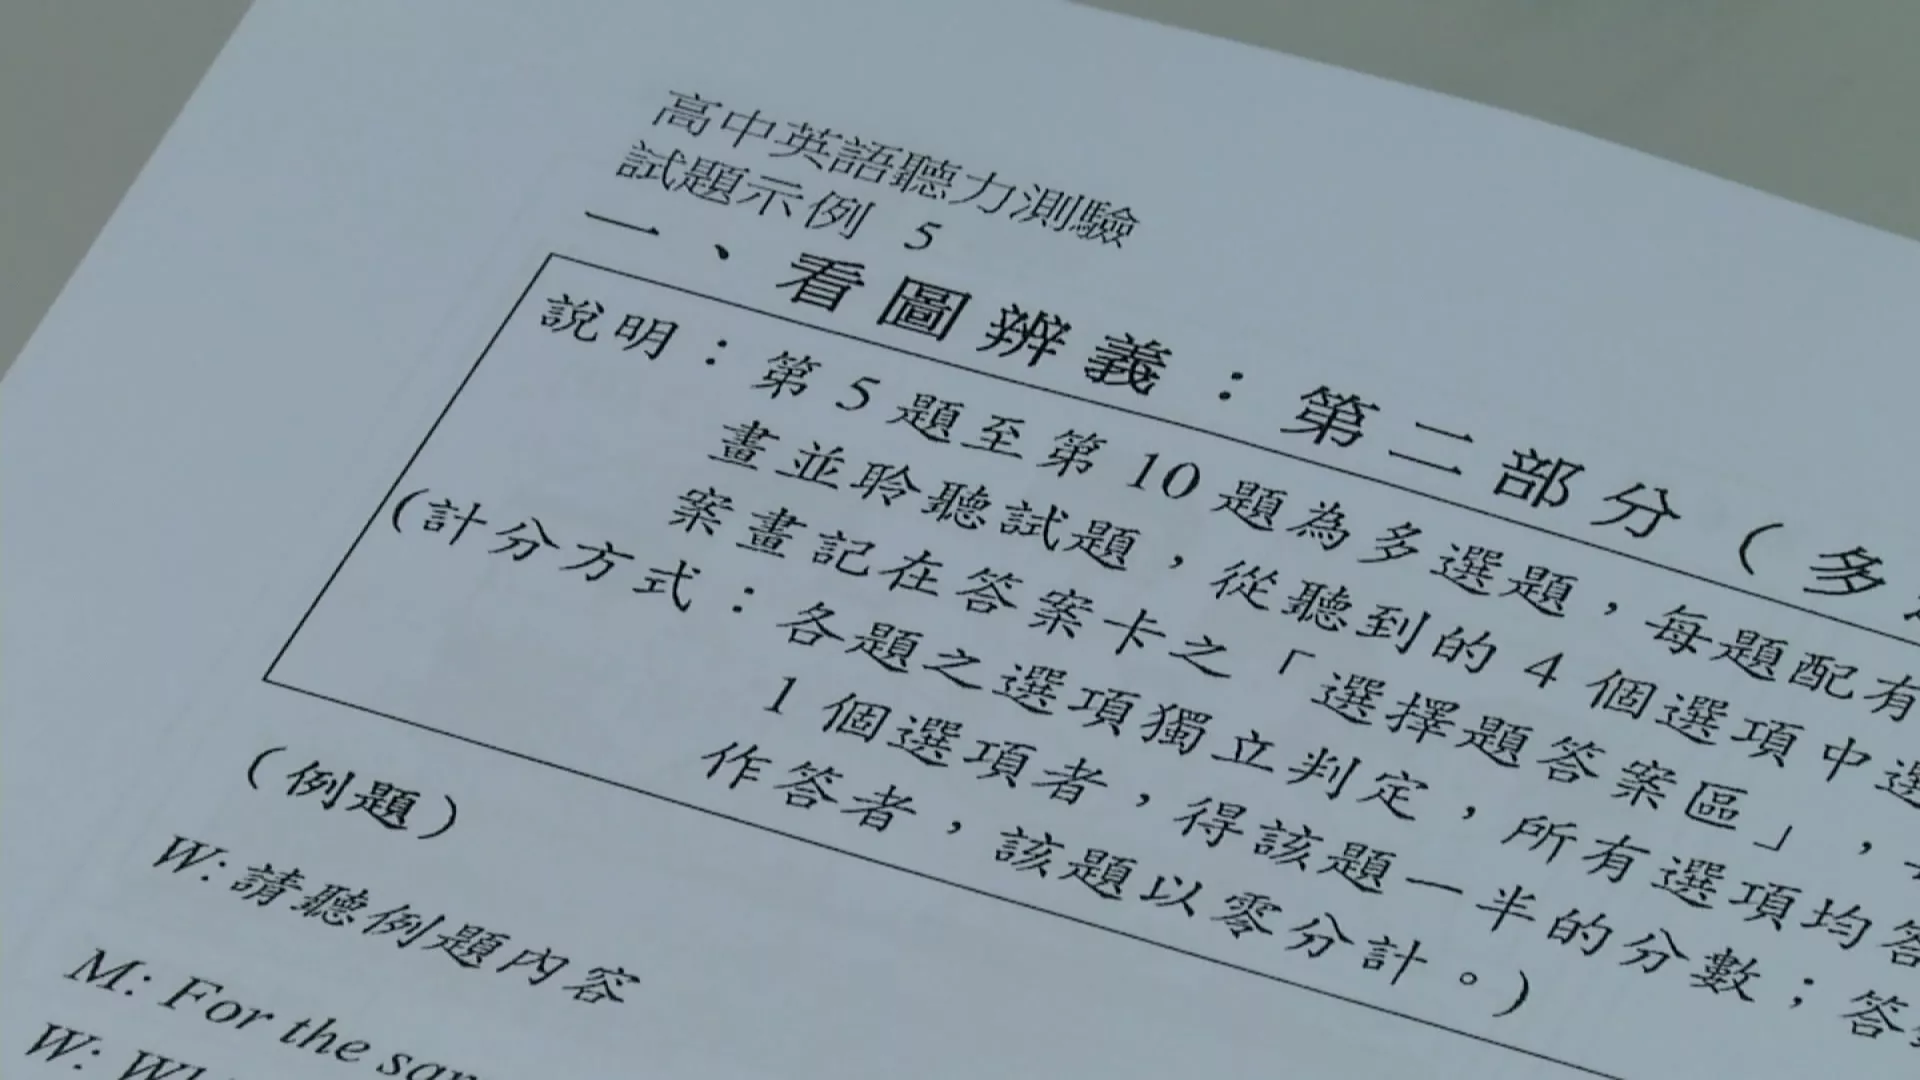 高中英語聽力測驗
試題示例 5
一、看圖辨義：第二部分（多
說明：第 5 題至第 10 題為多選題，每題配有
畫並聆聽試題，從聽到的 4 個選項中選
案畫記在答案卡之「選擇題答案區」，
(計分方式：各題之選項獨立判定，所有選項均答
1 個選項者，得該題一半的分數；答
作答者，該題以零分計。)
（例題）
W: 請聽例題內容
M: For the
W: